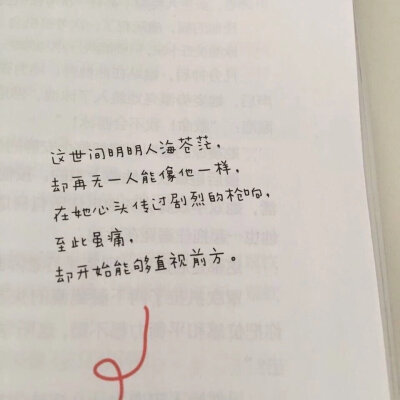 这世间明明人海苍茫，
却再无一人能像他一样，
在她心头传过剧烈的枪响，
至此虽痛，
却开始能够直视前方。